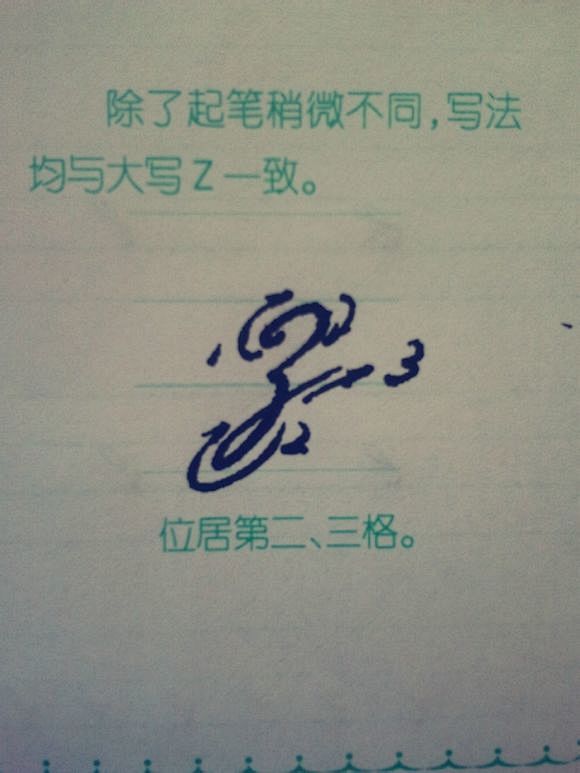 除了起笔稍微不同,写法
均与大写Z一致。
1
3
2
位居第二、三格。